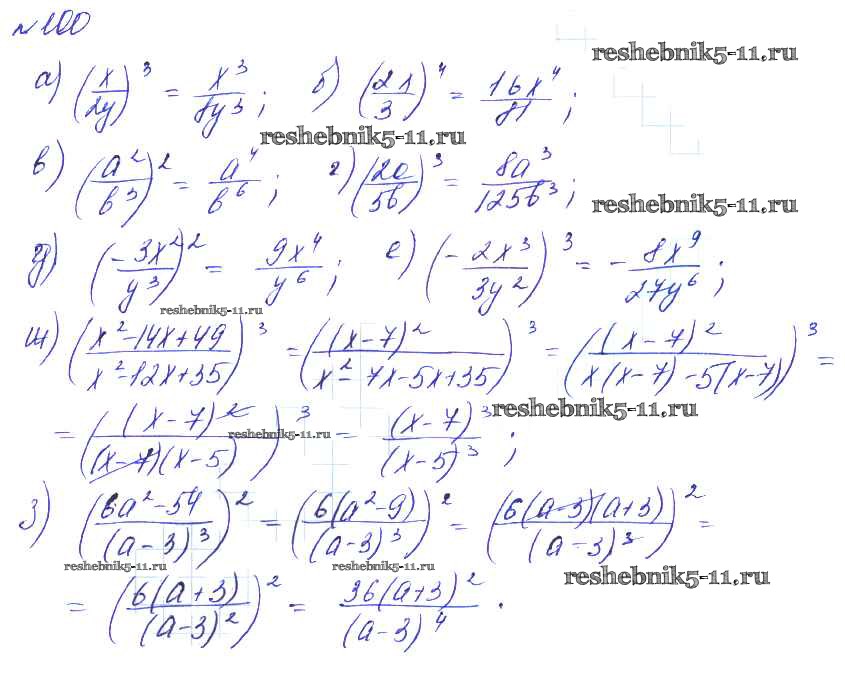 №100
reshebnik5-11.ru
а) (x/2y)³ = x³/8y³; б) (2x/3)⁴ = 16x⁴/81;
reshebnik5-11.ru
в) (a²/b³)² = a⁴/b⁶; г) (2a/5b)³ = 8a³/125b³;
reshebnik5-11.ru
д) (-3x²/y³)² = 9x⁴/y⁶; е) (-2x³/3y²)³ = -8x⁹/27y⁶;
reshebnik5-11.ru
ж) (x²-14x+49/x²-12x+35)³ = ((x-7)²/x²-7x-5x+35)³ = ((x-7)²/x(x-7)-5(x-7))³ =
reshebnik5-11.ru
= ((x-7)²/(x-7)(x-5))³ = (x-7)³/(x-5)³;
reshebnik5-11.ru
з) (6a²-54/(a-3)³)² = (6(a²-9)/(a-3)³)² = (6(a-3)(a+3)/(a-3)³)² =
reshebnik5-11.ru
reshebnik5-11.ru
reshebnik5-11.ru
= (6(a+3)/(a-3)²)² = 36(a+3)²/(a-3)⁴.